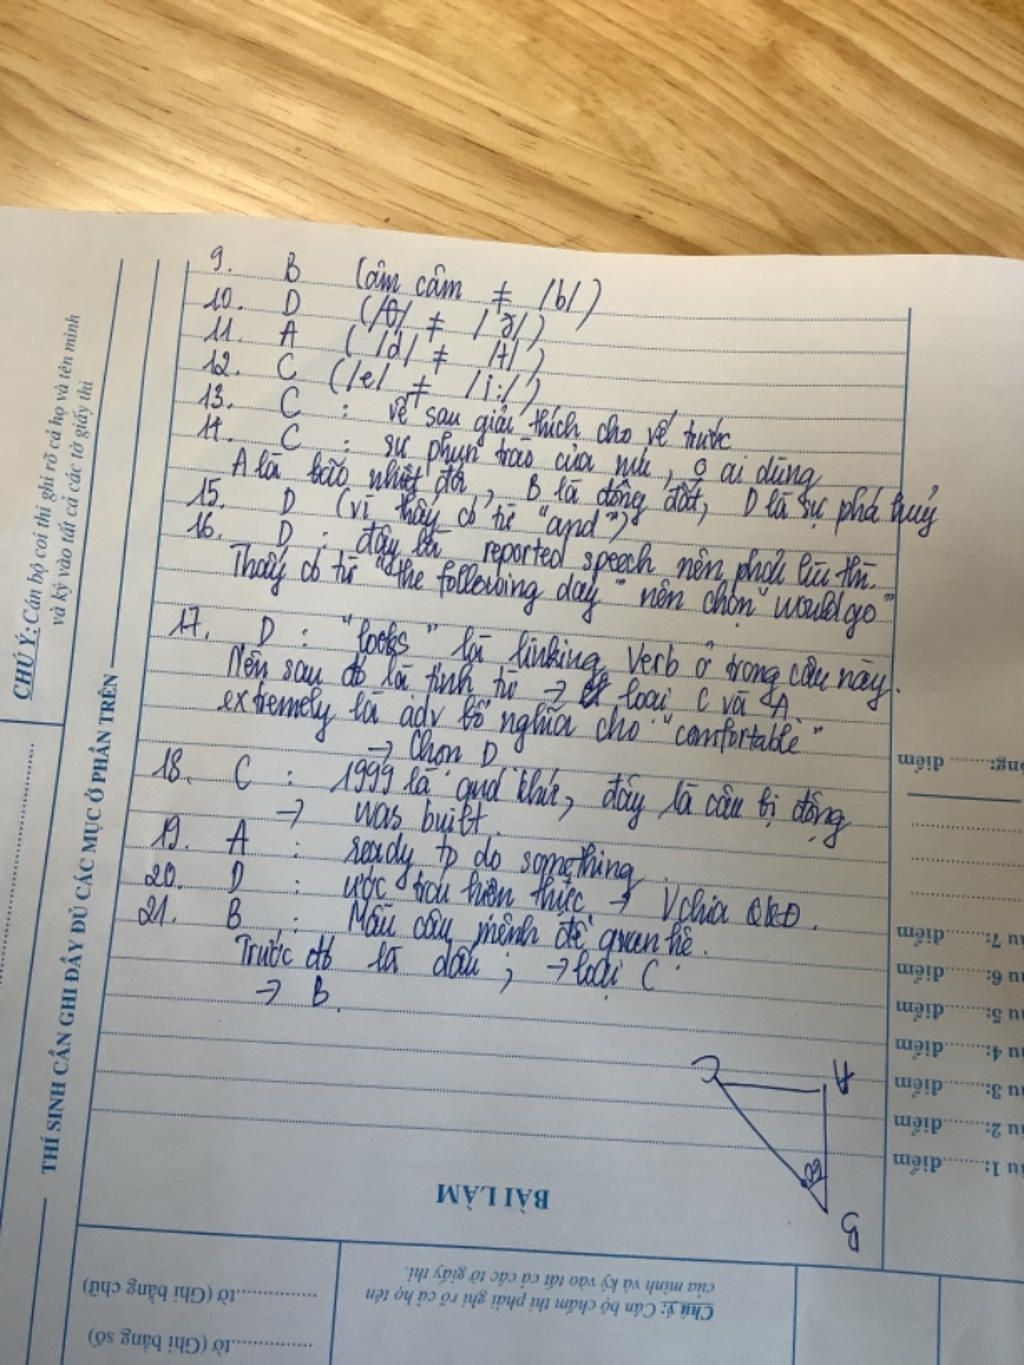 9. B (âm câm ≠ /b/)
10. D (/θ/ ≠ /ð/)
11. A (/d/ ≠ /t/)
12. C (/e/ ≠ /i:/)
13. C : vế sau giải thích cho vế trước
14. C : sự phun trào của núi, ai dùng
A là bão nhiệt đới, B là động đất, D là sự phá huỷ
15. D (vì thấy có từ "and")
16. D : đây là reported speech nên phải lùi thì.
Thấy có từ "the following day" nên chọn "would go"
17. D : "looks" là linking Verb ở trong câu này.
Nên sau đó là tính từ → loại C và A.
extremely là adv bổ nghĩa cho "comfortable"
→ Chọn D
18. C : 1999 là quá khứ, đây là câu bị động
→ was built.
19. A : ready to do something.
20. D : ước trái hiện thực → V chia QKĐ.
21. B : Mẫu câu mệnh đề quan hệ.
Trước đó là dấu ; → loại C.
→ B.
CHÚ Ý: Cán bộ coi thi ghi rõ cả họ và tên mình
và ký vào tất cả các tờ giấy thi
THÍ SINH CẦN GHI ĐẦY ĐỦ CÁC MỤC Ở PHẦN TRÊN
C A
B
BÀI LÀM
Chú ý: Cán bộ chấm thi phải ghi rõ cả họ tên
của mình và ký vào tất cả các tờ giấy thi.
tờ (Ghi bằng số)
tờ (Ghi bằng chữ)
u 1:........điểm
u 2:........điểm
u 3:........điểm
u 4:........điểm
u 5:........điểm
u 6:........điểm
u 7:........điểm
ng:........ điểm